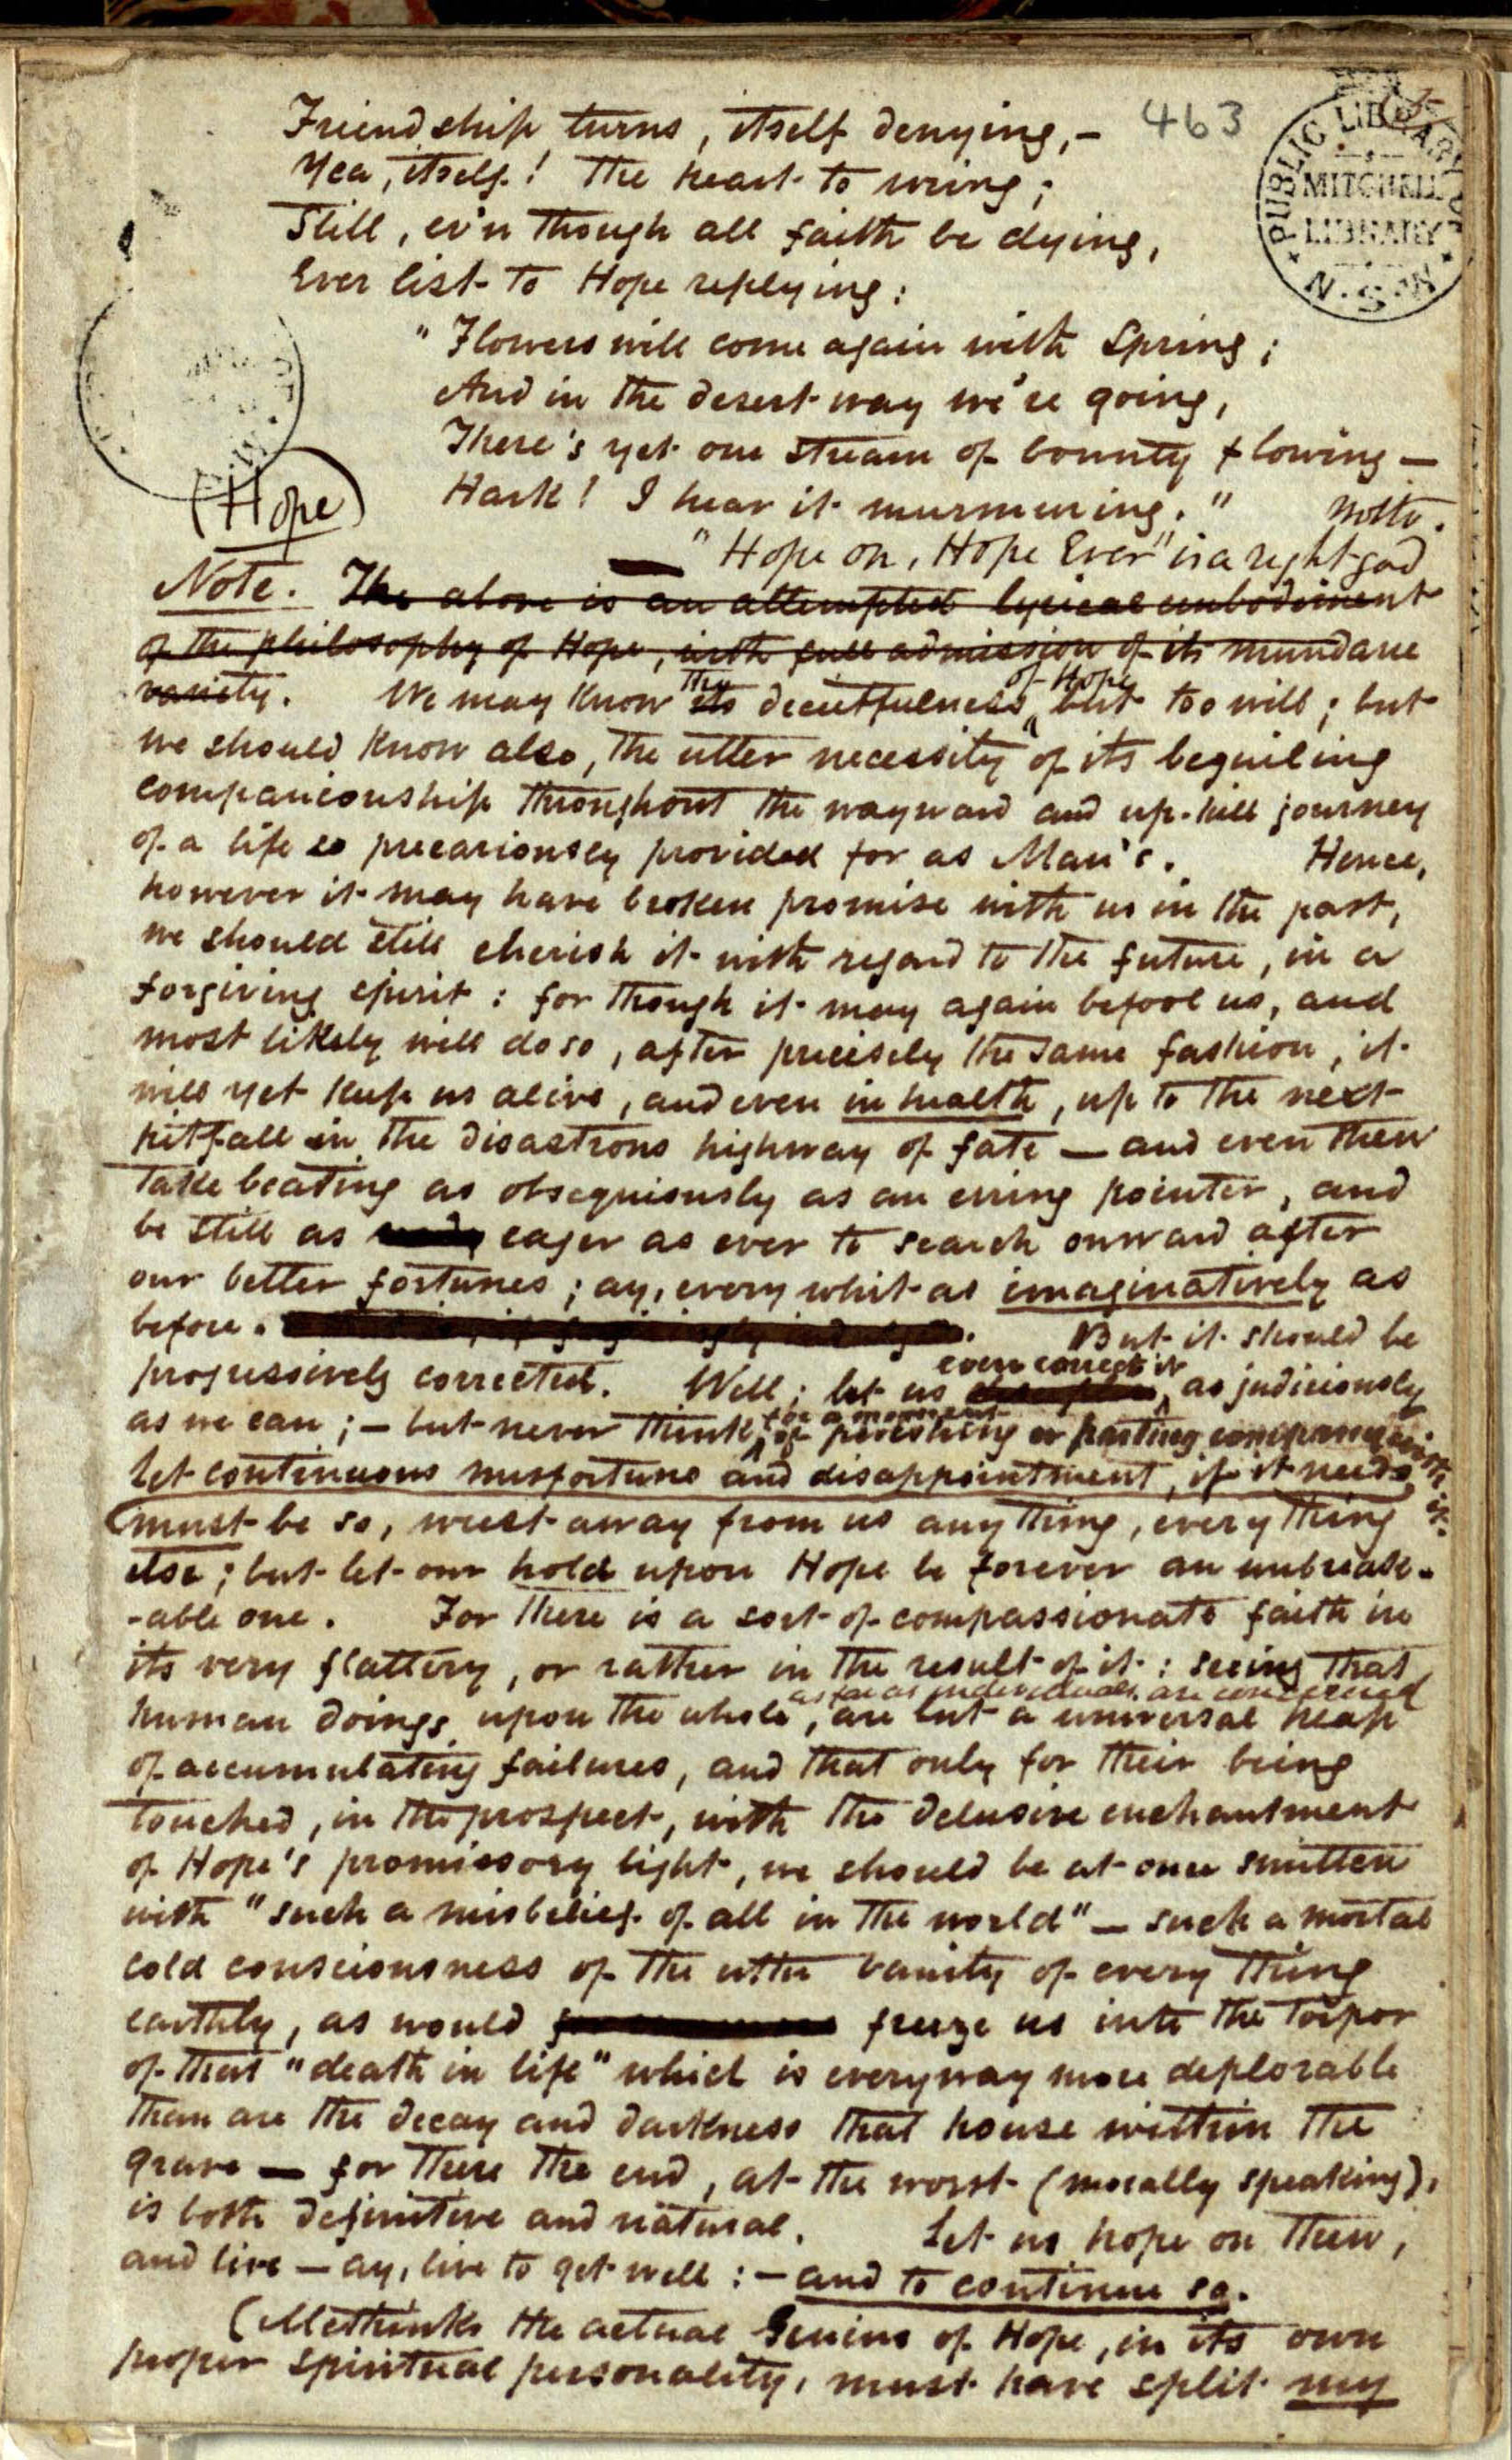 463
PUBLIC LIBRARY
MITCHELL
LIBRARY
N.S.W
Friendship turns, itself denying,—
Yea, itself! The heart to wring;
Still, ev'n though all faith be dying,
Ever list to Hope replying:
"Flowers will come again with Spring;
And in the desert way we're going,
There's yet one stream of bounty flowing —
Hark! I hear it murmuring."
(Hope)
— "Hope on, Hope Ever" is a right god motto.
Note. The above is an attempted lyrical embodiment
of the philosophy of Hope, with full admission of its mundane
vanity. We may know its the deceitfulness of Hope but too well; but
we should know also, the utter necessity of its beguiling
companionship throughout the wayward and up-hill journey
of a life so precariously provided for as Man's. Hence,
however it may have broken promise with us in the past,
we should still cherish it with regard to the future, in a
forgiving spirit: for though it may again befool us, and
most likely will do so, after precisely the same fashion, it
will yet keep us alive, and even in health, up to the next
pitfall in the disastrous highway of fate — and even then
take beating as obsequiously as an erring pointer, and
be still as eager as ever to search onward after
our better fortunes; ay, every whit as imaginatively as
before. But it should be
progressively corrected. Well; let us even correct it, as judiciously
as we can; — but never think for a moment of perishing or parting company with it.
Let continuous misfortune and disappointment, if it needs
must be so, wrest away from us any thing, every thing
else; but let our hold upon Hope be forever an unbreak-
-able one. For there is a sort of compassionate faith in
its very flattery, or rather in the result of it: seeing that
human doings upon the whole, as far as individuals are concerned are but a universal heap
of accumulating failures, and that only for their being
touched, in the prospect, with the delusive enchantment
of Hope's promissory light, we should be at once smitten
with "such a misbelief of all in the world" — such a mortal
cold consciousness of the utter vanity of every thing
earthly, as would freeze us into the torpor
of that "death in life" which is everyway more deplorable
than are the decay and darkness that house within the
grave — for there the end, at the worst (morally speaking),
is both definitive and natural. Let us hope on then,
and live — ay, live to get well: — and to continue so.
(Methinks the actual Genius of Hope, in its own
proper spiritual personality, must have split my